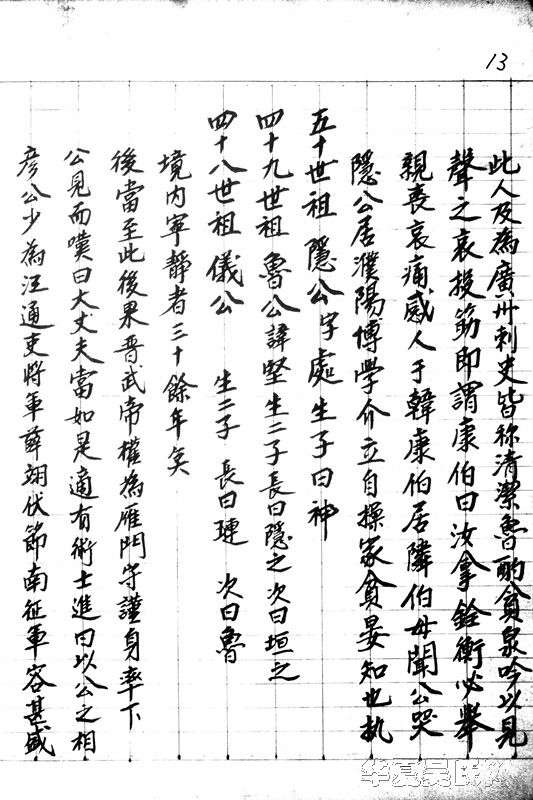 13
彦公少為汪通吏將軍薛翊伏節南征軍容甚盛
公見而嘆曰大丈夫當如是適有術士進曰以公之相
後當至此後果晋武帝權為雁門守謹身率下
境内寧靜者三十餘年矣
四十八世祖 儀公 生二子 長曰璉 次曰魯
四十九世祖 魯公諱堅生二子長曰隱之次曰垣之
五十世祖 隱公字處生子曰神
隱公居濮陽博學介立自操家貧晏知也执
親喪哀痛感人于韓康伯居隣伯母聞公哭
聲之哀投筋即謂康伯曰汝拿銓衡必舉
此人及為廣州刺史皆称清潔魯酌貪泉吟以見
华夏吴氏网